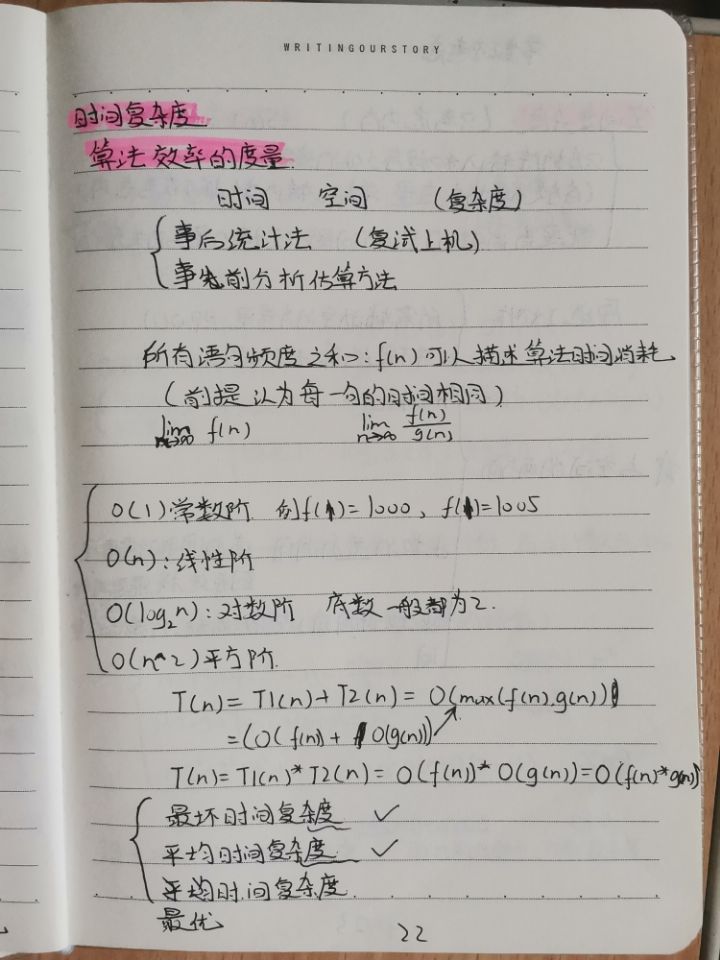 WRITINGOURSTORY
时间复杂度
算法效率的度量.
时间 空间 (复杂度)
事后统计法 (复试上机)
事前分析估算方法
所有语句频度之和:f(n)可以描述算法时间消耗
(前提认为每一句的时间相同)
lim n→∞ f(n) lim n→∞ f(n)/g(n)
O(1)常数阶 例f(1)=1000, f(1)=1005
O(n):线性阶
O(log₂n):对数阶 底数一般都为2.
O(n^2)平方阶.
T(n)=T1(n)+T2(n)=O(max(f(n).g(n)))
=(O(f(n))+O(g(n)))
T(n)=T1(n)*T2(n)=O(f(n))*O(g(n))=O(f(n)*g(n))
最坏时间复杂度 ✓
平均时间复杂度 ✓
平均时间复杂度
最优
22